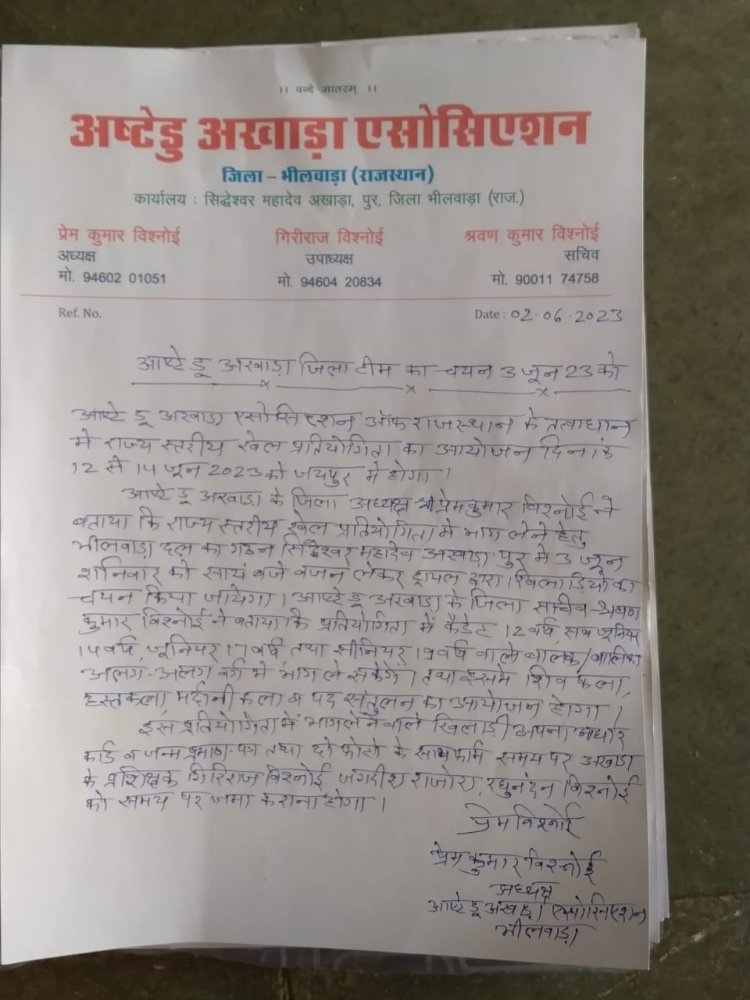 ।। वन्दे मातरम् ।।
अष्टेडु अखाड़ा एसोसिएशन
जिला – भीलवाड़ा (राजस्थान)
कार्यालय : सिद्धेश्वर महादेव अखाड़ा, पुर, जिला भीलवाड़ा (राज.)
प्रेम कुमार विश्नोई गिरीराज विश्नोई श्रवण कुमार विश्नोई
अध्यक्ष उपाध्यक्ष सचिव
मो. 94602 01051 मो. 94604 20834 मो. 90011 74758
Ref. No. Date : 02.06.2023
आष्टे डू अखाड़ा जिला टीम का चयन 3 जून 23 को
आष्टे डू अखाड़ा एसोसिएशन ऑफ राजस्थान के तत्वाधान
मे राज्य स्तरीय खेल प्रतियोगिता का आयोजन दिनांक
12 से 14 जून 2023 को जयपुर मे होगा।
आष्टे डू अखाड़ा के जिला अध्यक्ष श्री प्रेमकुमार विश्नोई ने
बताया कि राज्य स्तरीय खेल प्रतियोगिता मे भाग लेने हेतु
भीलवाड़ा दल का गठन सिद्धेश्वर महादेव अखाड़ा पुर मे 3 जून
शनिवार को सायं बजे वजन लेकर ट्रायल द्वारा खिलाडियो का
चयन किया जायेगा। आष्टे डू अखाड़ा के जिला सचिव श्रवण
कुमार विश्नोई ने बताया कि प्रतियोगिता में कैडेट 12 वर्ष सब जूनियर
14 वर्ष, जूनियर 17 वर्ष तथा सीनियर 19 वर्ष वाले बालक/बालिका
अलग-अलग वर्ग मे भाग ले सकेगे। तथा इसमे शिव कला,
हस्तकला मर्दानी कला व पद संतुलन का आयोजन होगा।
इस प्रतियोगिता मे भाग लेने वाले खिलाडी अपना आधार
कार्ड व जन्म प्रमाण-पत्र तथा दो फोटो के साथ फॉर्म समय पर अखाड़ा
के प्रशिक्षक गिरिराज विश्नोई जगदीश राजोरा, रघुनंदन विश्नोई
को समय पर जमा कराना होगा।
प्रेम विश्नोई
प्रेम कुमार विश्नोई
अध्यक्ष
आष्टे डू अखाड़ा एसोसिएशन
भीलवाड़ा